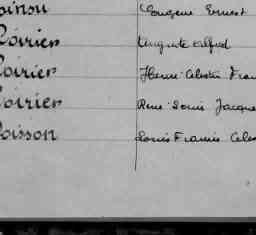 oinsu Eugène Ernest
Poirier Auguste Alfred
Poirier Henri Célestin Fran
Poirier René Louis Jacque
Poisson Louis Francis Céles